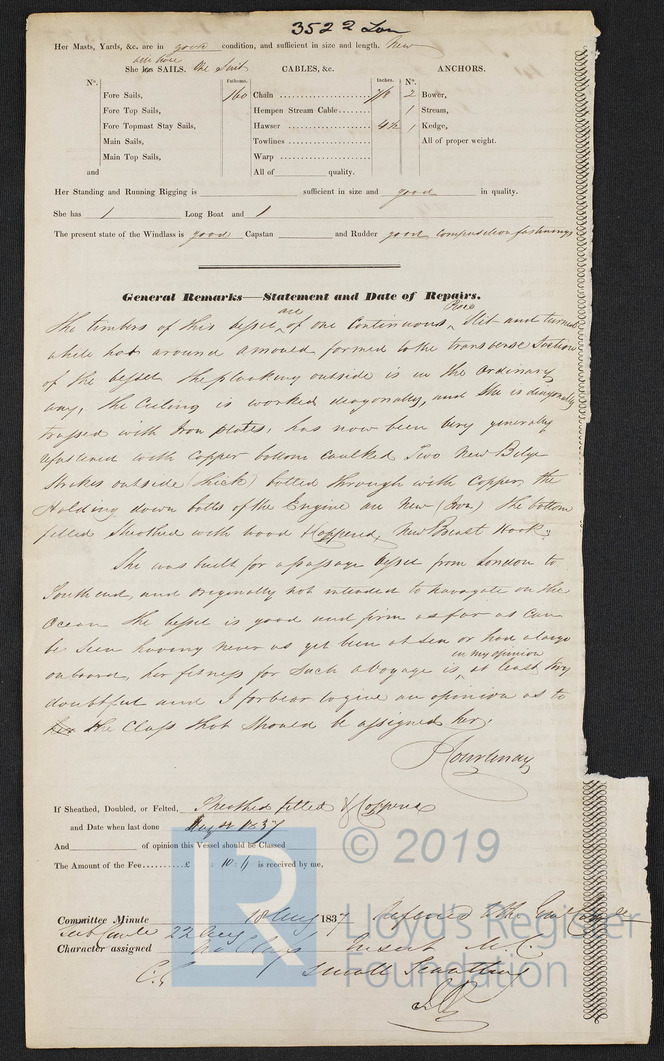 3522 Lon
Her Masts, Yards, &c. are in good condition, and sufficient in size and length. New
She has SAILS. CABLES, &c. ANCHORS.
one Suit
No. Fathoms. Inches. No.
Fore Sails, 160 Chain 7/8 2 Bower,
Fore Top Sails, Hempen Stream Cable 1 Stream,
Fore Topmast Stay Sails, Hawser 4½ 1 Kedge,
Main Sails, Towlines All of proper weight.
Main Top Sails, Warp
and All of quality.
Her Standing and Running Rigging is sufficient in size and good in quality.
She has 1 Long Boat and 1
The present state of the Windlass is good Capstan and Rudder good composition fastnings
General Remarks—Statement and Date of Repairs.
are Piece
The timbers of this vessel of one Continuous Slit and turned
while hot around a mould formed to the transverse Section
of the vessel the planking outside is in the Ordinary
way, the Ceiling is worked diagonally, and She is diagonally
trussed with Iron plates, has now been very generally
refastened with Copper bottom Caulked Two New Bilge
Strakes outside (thick) bolted through with Copper, the
Holding down bolts of the Engine are New (Iron) the bottom
felted Sheathed with wood & Coppered, New Breast Hook.
She was built for a passage vessel from London to
Southend, and originally not intended to navigate on the
Ocean the vessel is good and firm as far as can
be seen having never as yet been at sea or had a large
in my opinion
onboard, her fitness for Such a voyage is at least very
doubtful and I forbear to give an opinion as to
the Class that Should be assigned her.
J Courtenay
If Sheathed, Doubled, or Felted, Sheathed felted & Coppered
and Date when last done Augt 1837
And of opinion this Vessel should be Classed
The Amount of the Fee £ : 10 : is received by me,
© 2019
Committee Minute 18 Aug 1837 Referred to the Sub Comtee
Sub Comtee 22 Aug
Character assigned No Class Insert M.C.
Small Scantling
LR
Lloyd's Register
Foundation